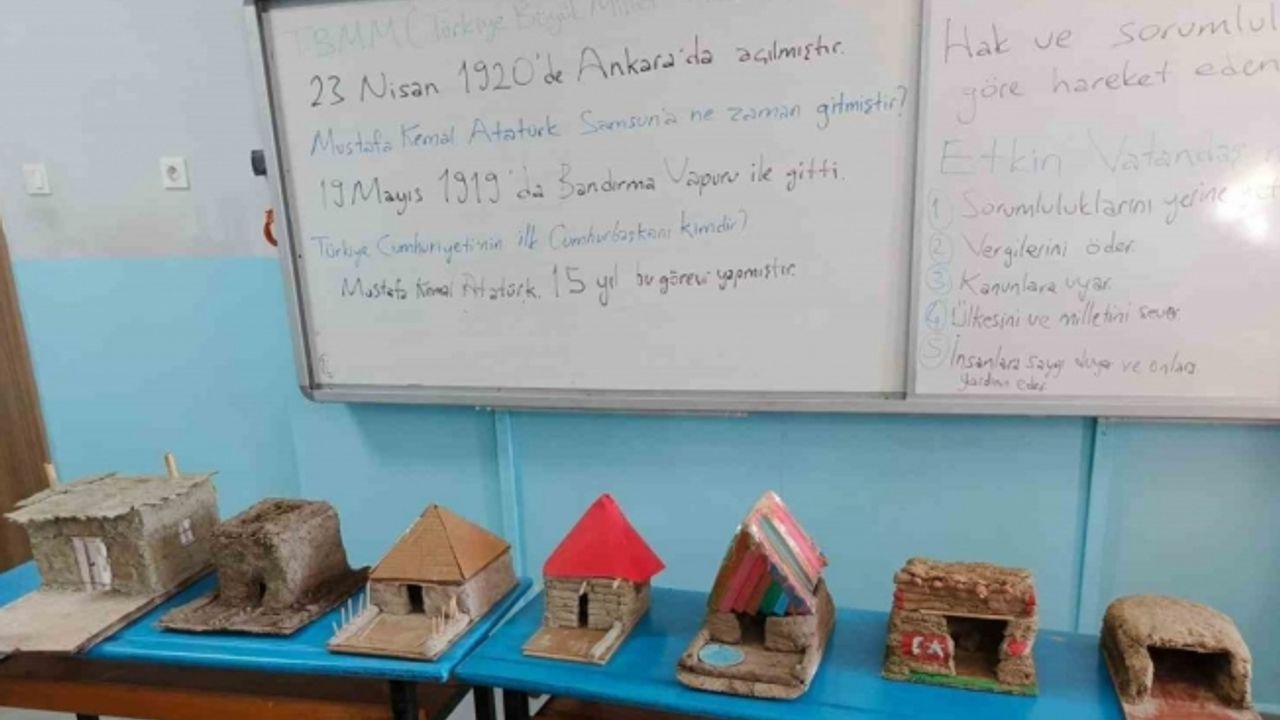 TBMM (Türkiye Büyük Millet
23 Nisan 1920'de Ankara'da açılmıştır.
Mustafa Kemal Atatürk Samsun'a ne zaman gitmiştir?
19 Mayıs 1919'da Bandırma Vapuru ile gitti.
Türkiye Cumhuriyeti'nin ilk Cumhurbaşkanı kimdir?
Mustafa Kemal Atatürk. 15 yıl bu görevi yapmıştır.
Hak ve sorumlul
göre hareket eden
Etkin Vatandaş
1 Sorumluluklarını yerine
2 Vergilerini öder.
3 Kanunlara uyar.
4 Ülkesini ve milletini sever.
5 İnsanlara saygı duyar ve onlara
yardım eder.